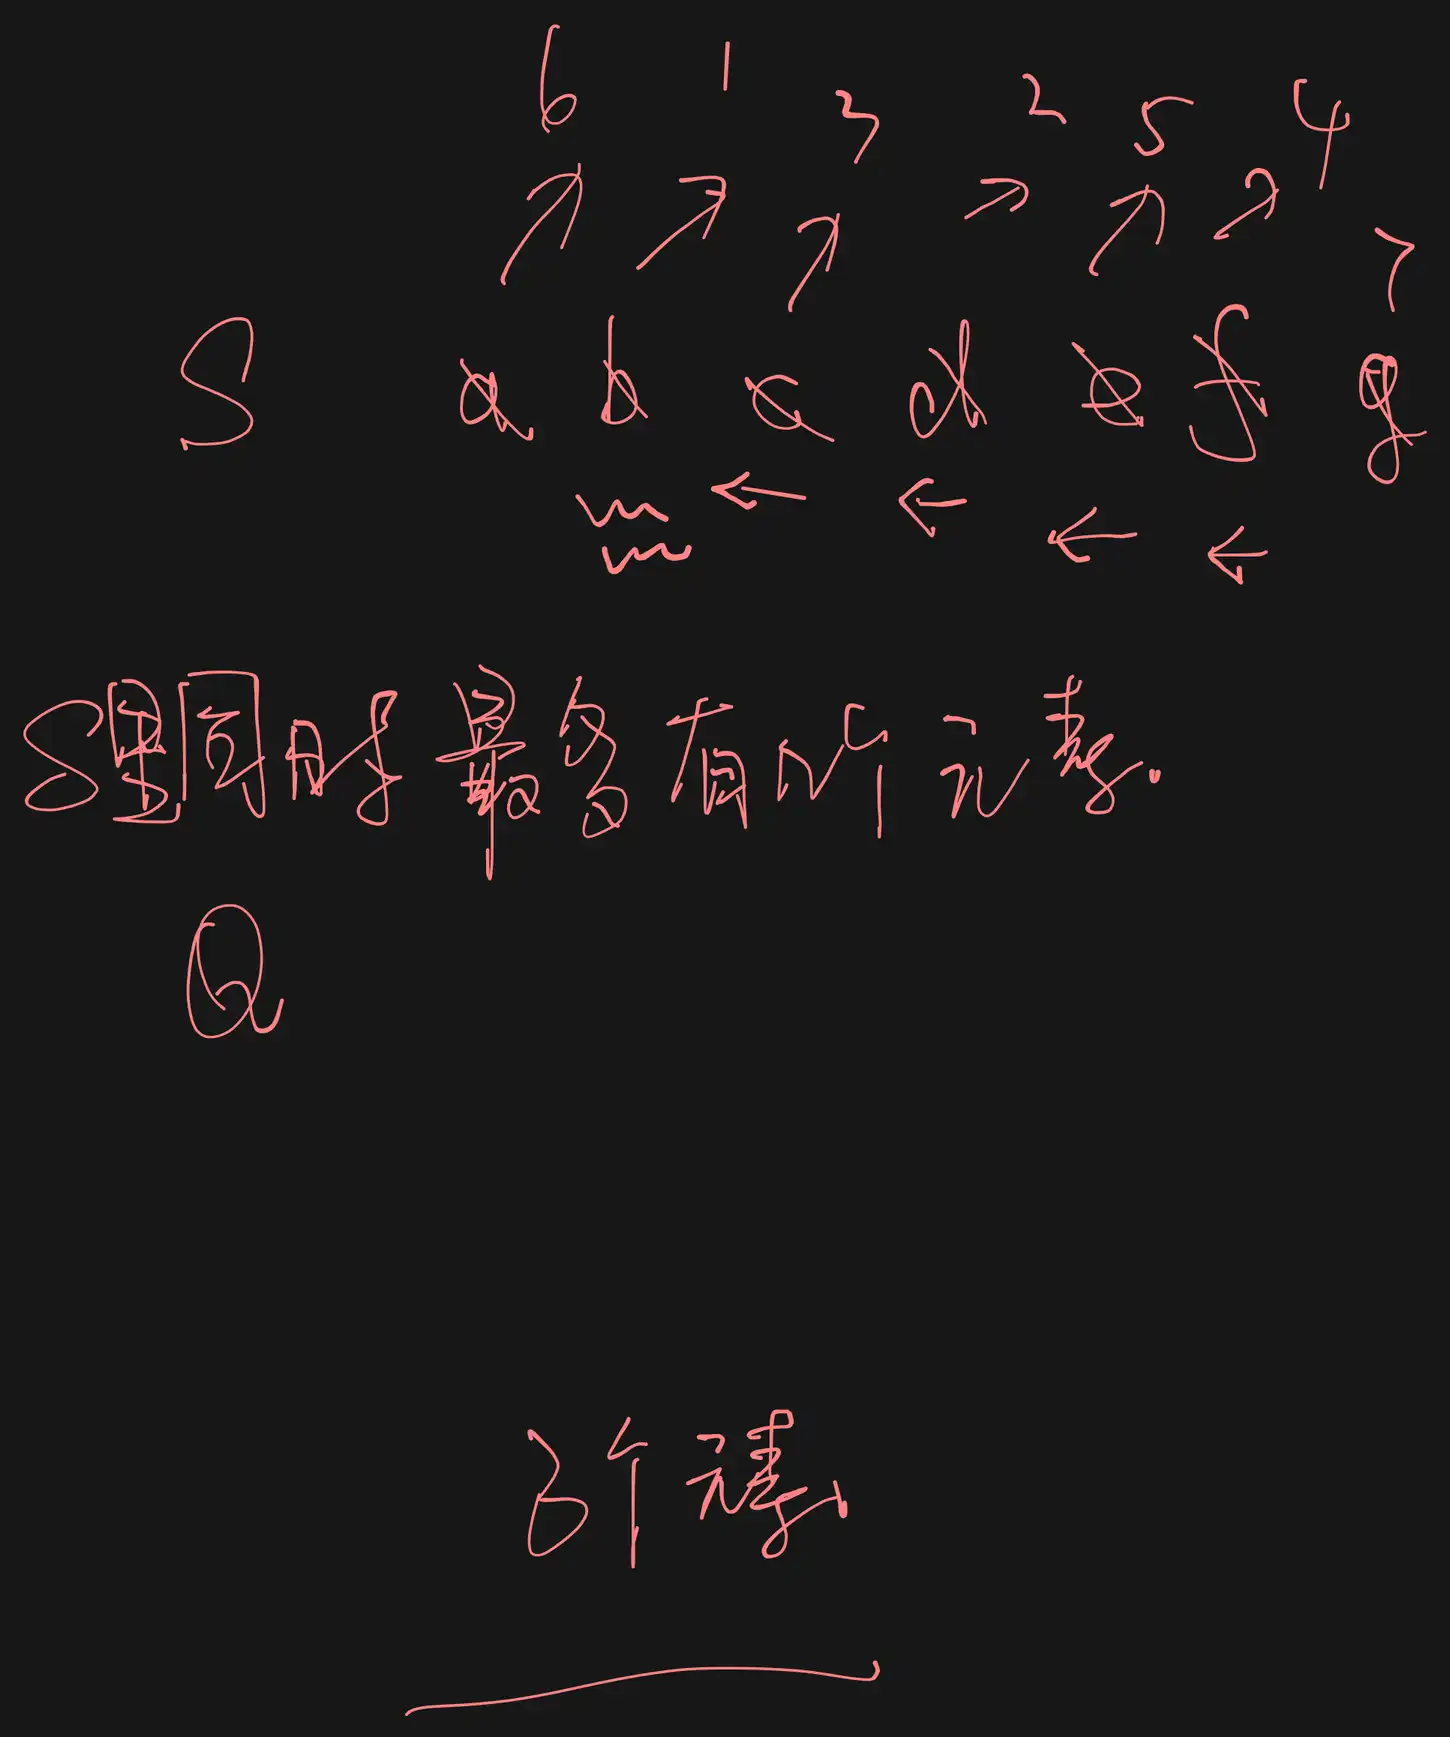 6 1 3 2 5 4 7
S a b c d e f g
S里同时最多有几个元素.
Q
3个元素